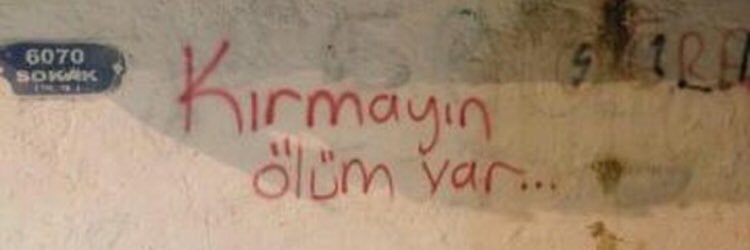 6070
SOKAK
Kırmayın
ölüm var...